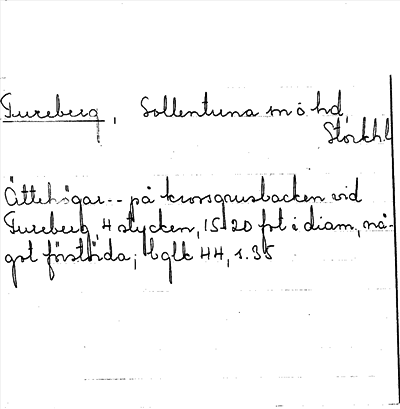 Tureberg, Sollentuna sn o hd,
Stockhl
Ättehögar-- på krossgrusbacken vid
Tureberg, 4 stycken, 15-20 fot i diam, nå-
got förstörda; bglk 44, s. 35